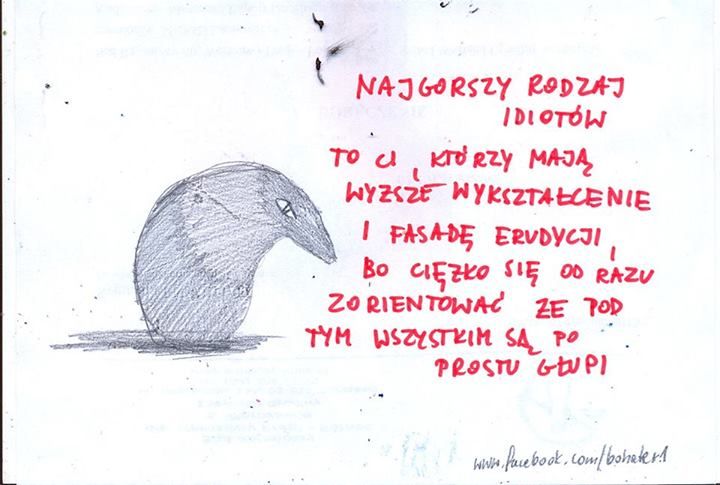 NAJGORSZY RODZAJ
IDIOTÓW
TO CI, KTÓRZY MAJĄ
WYŻSZE WYKSZTAŁCENIE
I FASADĘ ERUDYCJI,
BO CIĘŻKO SIĘ OD RAZU
ZORIENTOWAĆ ŻE POD
TYM WSZYSTKIM SĄ PO
PROSTU GŁUPI
www.facebook.com/bohater1